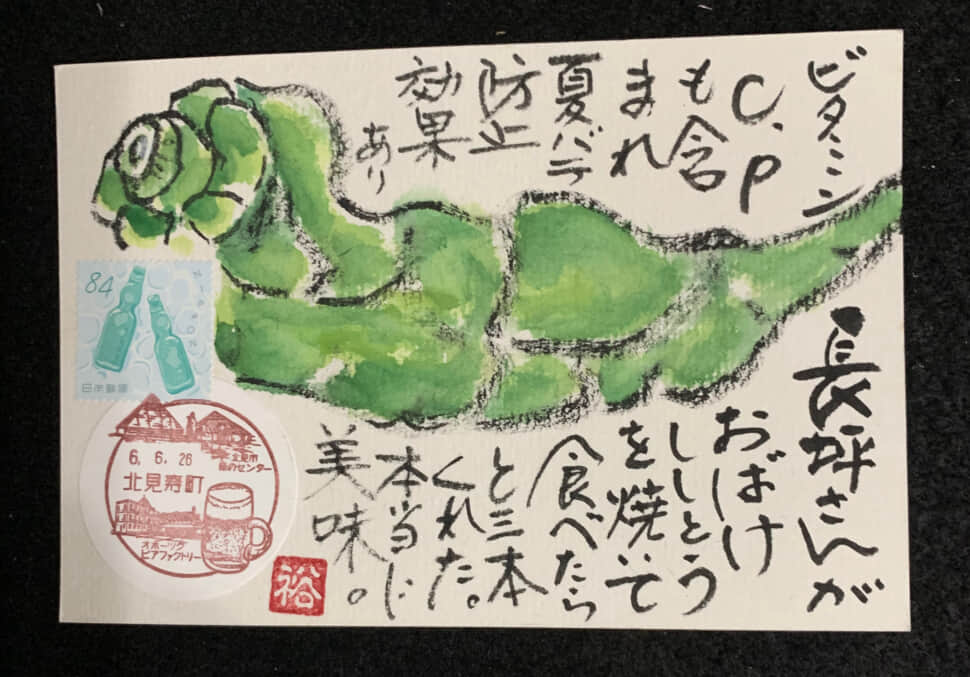 ビタミン
C、P
も含
まれ
夏バテ
防止
効果
あり
長坪さんが
おばけ
ししとう
を焼いて
食べたら
と三本
くれた。
本当に
美味。
裕
84
日本郵便
6.6.26
北見市
緑のセンター
北見寿町
オホーツク
ビアファクトリー